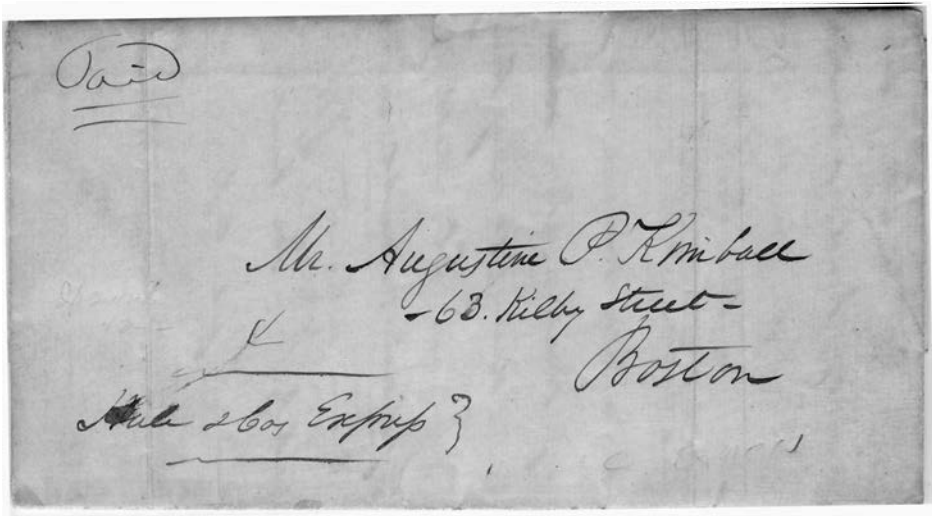 Paid
Mr. Augustine P. Kimball
-63. Kilby Street-
Boston
Hale & Cos Express }